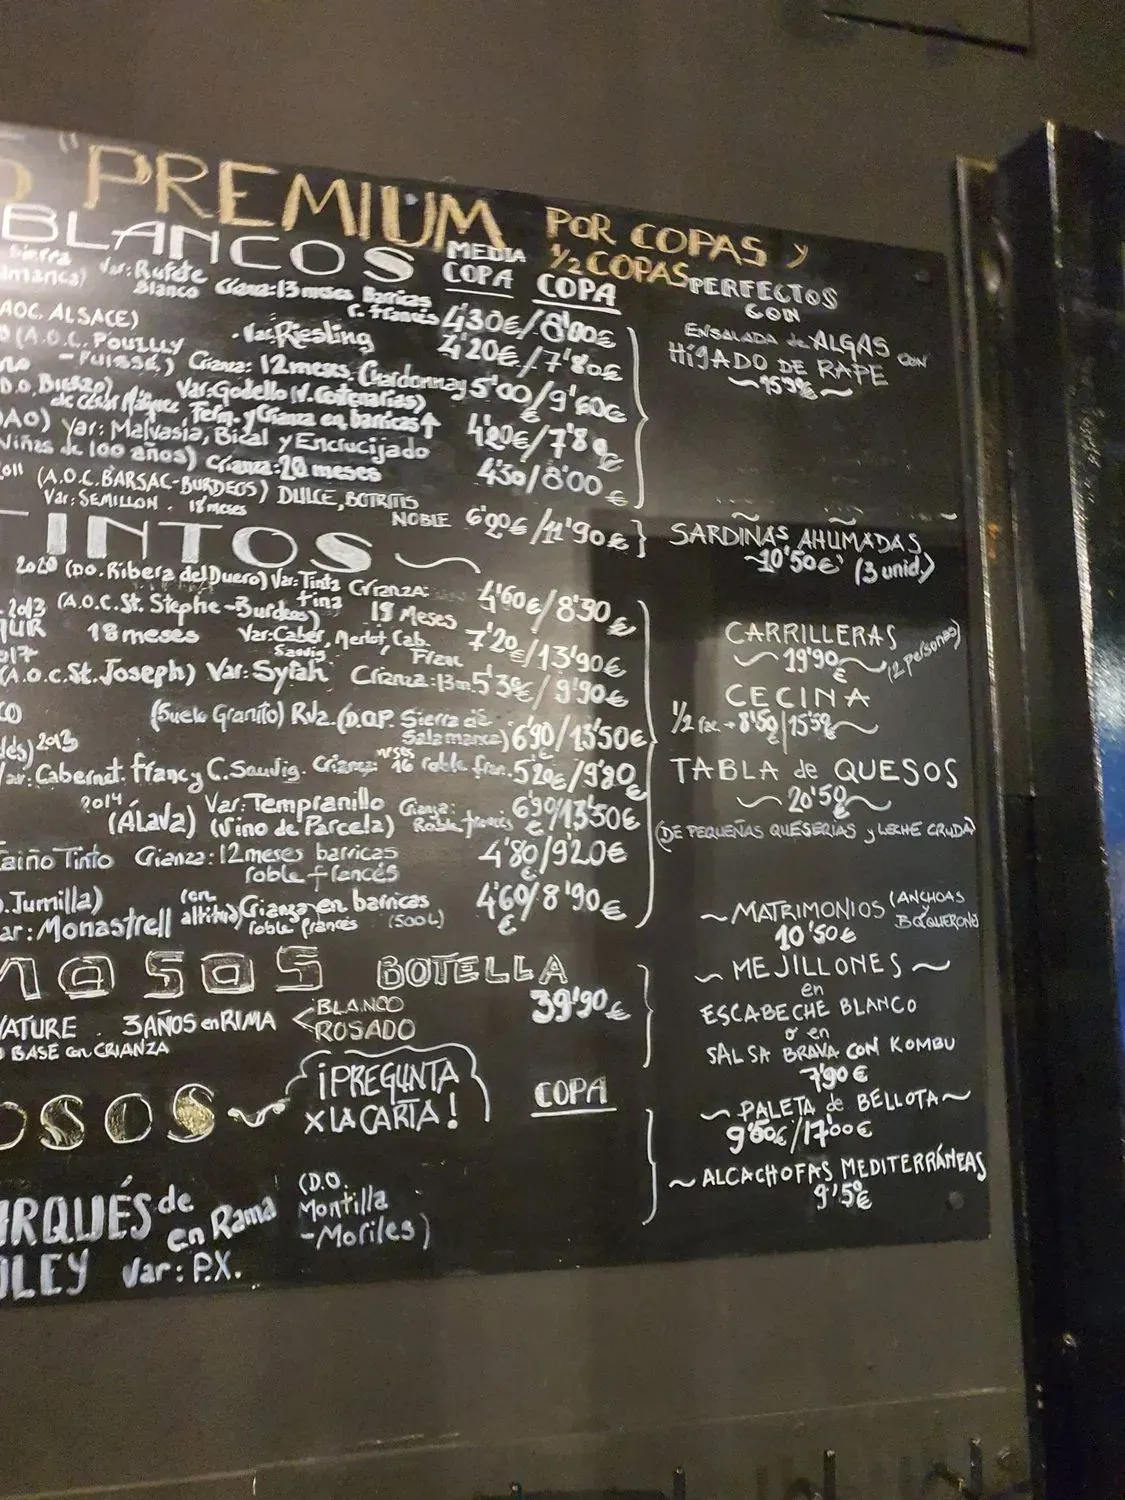 "PREMIUM POR COPAS y
1/2 COPAS
BLANCOS MEDIA
COPA COPA
Var: Rufete
Blanco Crianza: 13 meses Barricas
r. francés 4'30€/8'00€
AOC. ALSACE) Var: Riesling 4'20€/7'80€
(A.O.C. POUILLY
-FUISSÉ) Crianza: 12 meses Chardonnay 5'00/9'60€
D.O. Bierzo) Var: Godello (V. Centenarias)
de César Márquez Ferm. y Crianza en barricas 4'20€/7'8
Var: Malvasia, Bical y Encrucijado
Viñas de 100 años) Crianza: 20 meses 4'30/8'00€
2011 (A.O.C. BARSAC-BURDEOS) DULCE, BOTRITIS
Var: SEMILLON. 18 meses NOBLE 6'20€/11'90€
TINTOS
2020 (D.O. Ribera del Duero) Var: Tinta Crianza:
fina 18 Meses 4'60€/8'30€
2013 (A.O.C. St. Stephe-Burdeos)
18 meses Var: Caber, Merlot, Cab.
Sauvig. Franc 7'20€/13'90€
(A.O.C. St. Joseph) Var: Syrah Crianza: 13 m. 5'3€/9'90€
(Suelo Granito) (D.O.P. Sierra de
Salamanca) 6'90/13'50€
2013
Var: Cabernet franc y C. Sauvig. Crianza: 16 meses roble fran. 5'20€/9'80
2014 Var: Tempranillo Crianza:
(Álava) (Vino de Parcela) Roble francés 6'90/13'50€
Caiño Tinto Crianza: 12 meses barricas
roble francés 4'80/9'20€
Jumilla) (en
altitud) Crianza en barricas
Var: Monastrell roble francés (500L) 4'60/8'90€
BOTELLA
39'90€
NATURE. 3 AÑOS en RIMA BLANCO
ROSADO
BASE con CRIANZA
OSOS ¡PREGUNTA
X LA CARTA! COPA
MARQUÉS de
en Rama (D.O.
Montilla
-Moriles)
Var: P.X.
PERFECTOS
CON
ENSALADA de ALGAS CON
HÍGADO DE RAPE
SARDINAS AHUMADAS
10'50€ (3 unid.)
CARRILLERAS
19'90€ (2 personas)
CECINA
1/2 rac. → 8'50|15'50
TABLA de QUESOS
20'50€
(DE PEQUEÑAS QUESERIAS y LECHE CRUDA)
MATRIMONIOS (ANCHOAS
BOQUERONES
10'50€
MEJILLONES
en
ESCABECHE BLANCO
o en
SALSA BRAVA CON KOMBU
7'90€
PALETA de BELLOTA
17'00€
ALCACHOFAS MEDITERRÁNEAS
9'5€